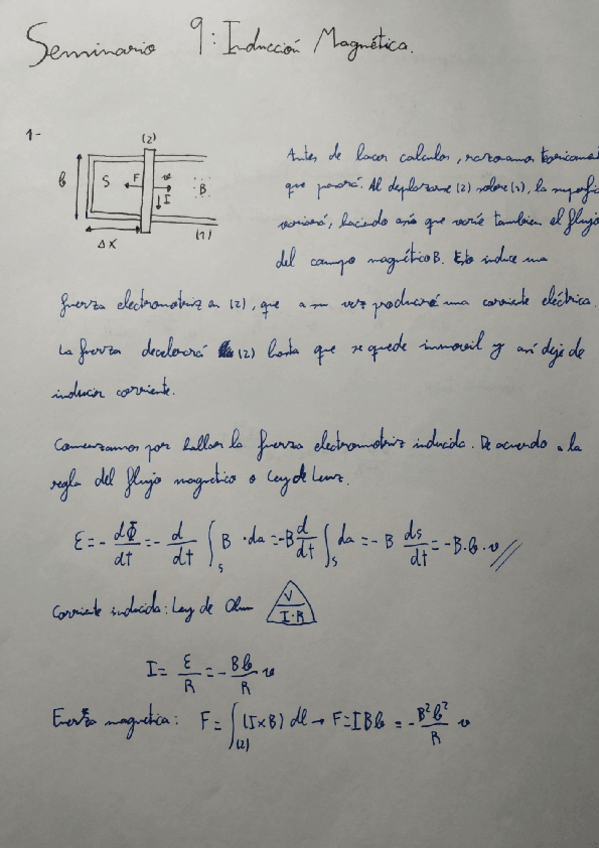 Seminario 9: Inducción Magnética.
1-
(2)
b
S
F
v
I
B
Δx
(1)
Antes de hacer calculos, razonamos teoricament
que pasará. Al desplazarse (2) sobre (1), la superfic
variará, haciendo así que varíe tambien el flujo
del campo magnético B. Esto induce una
fuerza electromotriz en (2), que a su vez producirá una corriente eléctrica.
La fuerza decelerará (2) hasta que se quede inmovil y así deje de
inducir corriente.
Comenzamos por hallar la fuerza electromotriz inducida. De acuerdo a la
regla del flujo magnetico o Ley de Lenz.
ε = - dΦ/dt = - d/dt ∫s B · da = -B d/dt ∫s da = - B ds/dt = -B·b·v //
Corriente inducida: Ley de Ohm V / I·R
I = ε/R = - Bb/R v
Fuerza magnética: F = ∫(2) (I×B) dl → F = IBb = - B²b²/R v